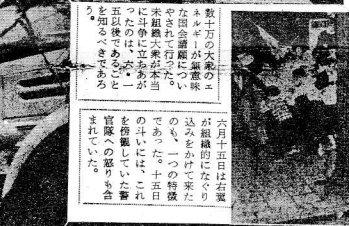 数十万の大衆のエ
ネルギーが無意味
な国会請願につい
やされて行った。
未組織大衆が本当
に斗争に立ちあが
ったのは、六・一
五以後であること
を知るべきであろ
う。
六月十五日は右翼
が組織的になぐり
込みをかけて来た
のも、一つの特徴
であった。十五日
の斗いには、これ
を傍観していた警
官隊への怒りも含
まれていた。